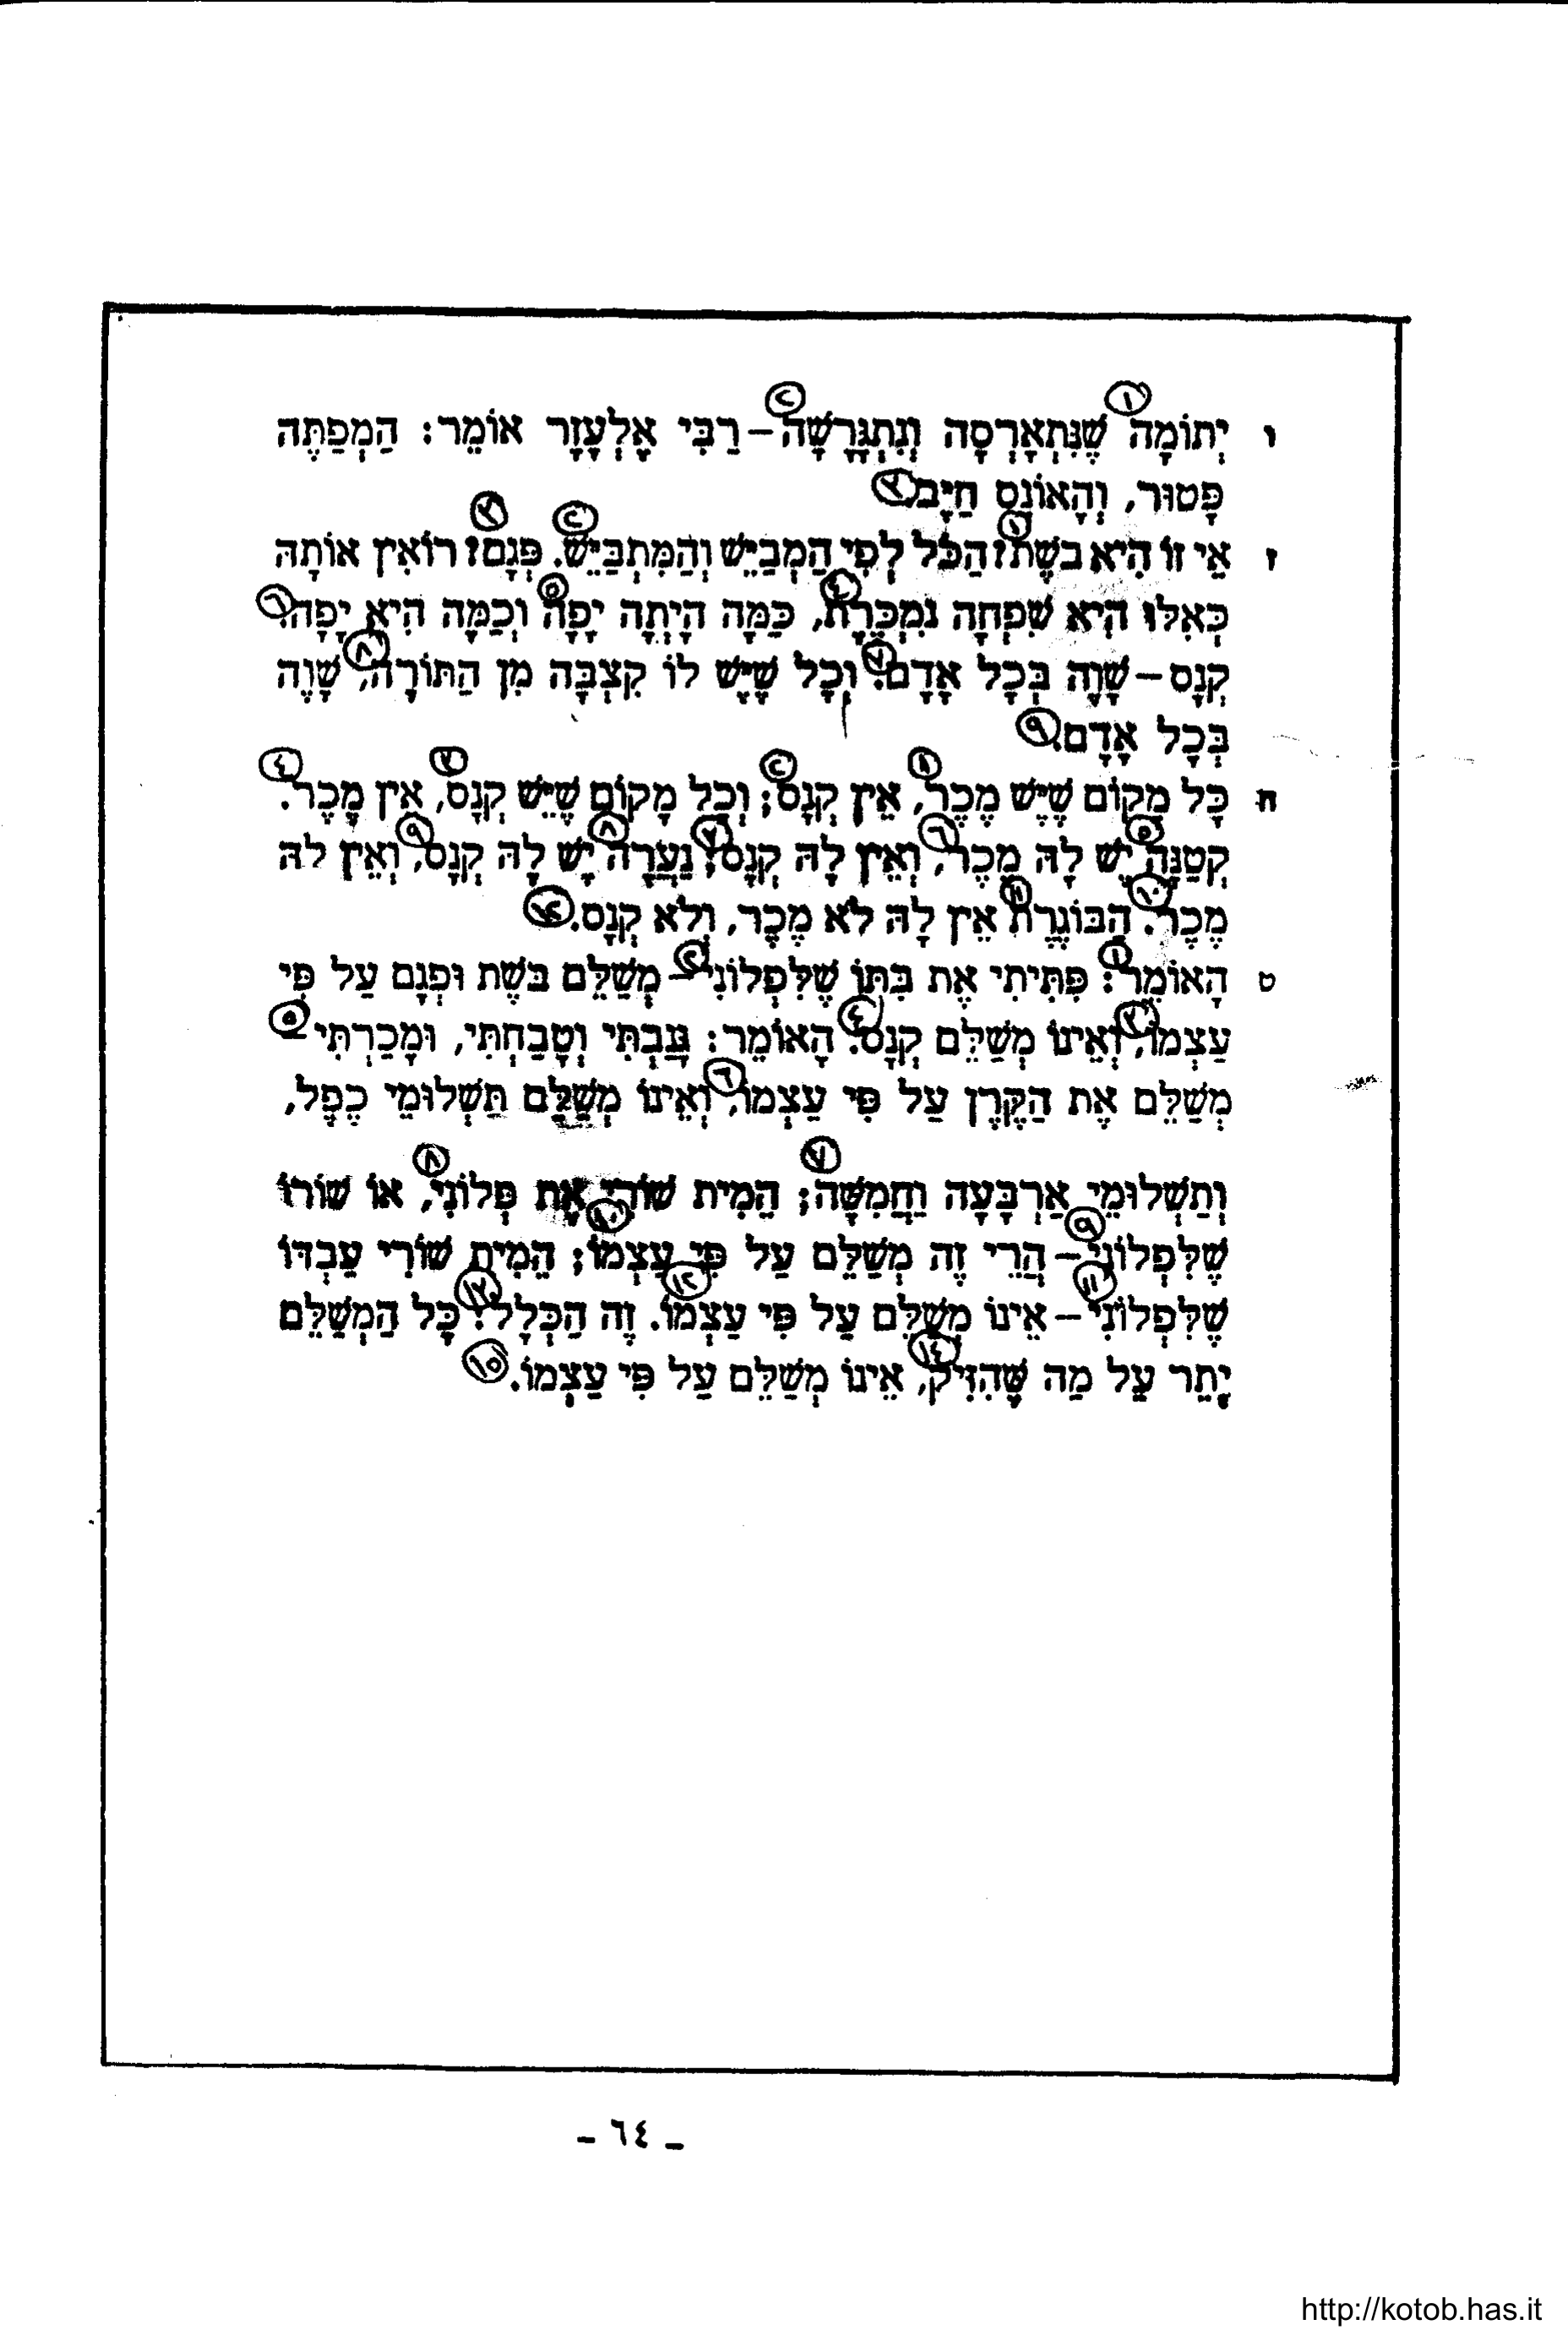 ו יְתוֹמָה ① שֶׁנִּתְאָרְסָה וְנִתְגָּרְשָׁה ② – רַבִּי אֶלְעָזָר אוֹמֵר: הַמְפַתֶּה
פָּטוּר, וְהָאוֹנֵס חַיָּב. ③
ז אֵי זוֹ הִיא בשֶׁת ①? הַכֹּל לְפִי הַמְבַיֵּשׁ וְהַמִּתְבַּיֵּשׁ ②. פְּגָם ③? רוֹאִין אוֹתָהּ
כְּאִלּוּ הִיא שִׁפְחָה נִמְכֶּרֶת ④, כַּמָּה הָיְתָה יָפָה ⑤ וְכַמָּה הִיא יָפָה. ⑥
קְנָס – שָׁוֶה בְּכָל אָדָם ⑦. וְכָל שֶׁיֶּשׁ לוֹ קִצְבָּה מִן הַתּוֹרָה ⑧, שָׁוֶה
בְּכָל אָדָם. ⑨
ח כָּל מָקוֹם שֶׁיֶּשׁ מֶכֶר ①, אֵין קְנָס ②; וְכָל מָקוֹם שֶׁיֵּשׁ קְנָס ③, אֵין מֶכֶר. ④
קְטַנָּה ⑤ יֶשׁ לָהּ מֶכֶר ⑥, וְאֵין לָהּ קְנָס ⑦; נַעֲרָה ⑧ יֶשׁ לָהּ קְנָס ⑨, וְאֵין לה
מֶכֶר ⑩. הַבּוֹגֶרֶת ⑪ אֵין לָהּ לֹא מֶכֶר, וְלֹא קְנָס. ⑫
ט הָאוֹמֵר ①: פִּתִּיתִי אֶת בִּתּוֹ שֶׁלִּפְלוֹנִי ② – מְשַׁלֵּם בּשֶׁת וּפְגָם עַל פִּי
עַצְמוֹ ③, וְאֵינוֹ מְשַׁלֵּם קְנָס ④. הָאוֹמֵר: גָּנַבְתִּי וְטָבַחְתִּי, וּמָכַרְתִּי – ⑤
מְשַׁלֵּם אֶת הַקֶּרֶן עַל פִּי עַצְמוֹ ⑥, וְאֵינוֹ מְשַׁלֵּם תַּשְׁלוּמֵי כֶפֶל,
וְתַשְׁלוּמֵי אַרְבָּעָה וַחֲמִשָּׁה ⑦; הֵמִית שׁוֹרִי אֶת פְּלוֹנִי ⑧, אוֹ שׁוֹרוֹ
שֶׁלִּפְלוֹנִי ⑨ – הֲרֵי זֶה מְשַׁלֵּם עַל פִּי עַצְמוֹ ⑩; הֵמִית שׁוֹרִי עַבְדּוֹ
שֶׁלִּפְלוֹנִי ⑪ – אֵינוֹ מְשַׁלֵּם עַל פִּי עַצְמוֹ ⑫. זֶה הַכְּלָל ⑬: כָּל הַמְשַׁלֵּם
יָתֵר עַל מַה שֶּׁהִזִּיק ⑭, אֵינוֹ מְשַׁלֵּם עַל פִּי עַצְמוֹ. ⑮
ـ ٦٤ ـ
http://kotob.has.it